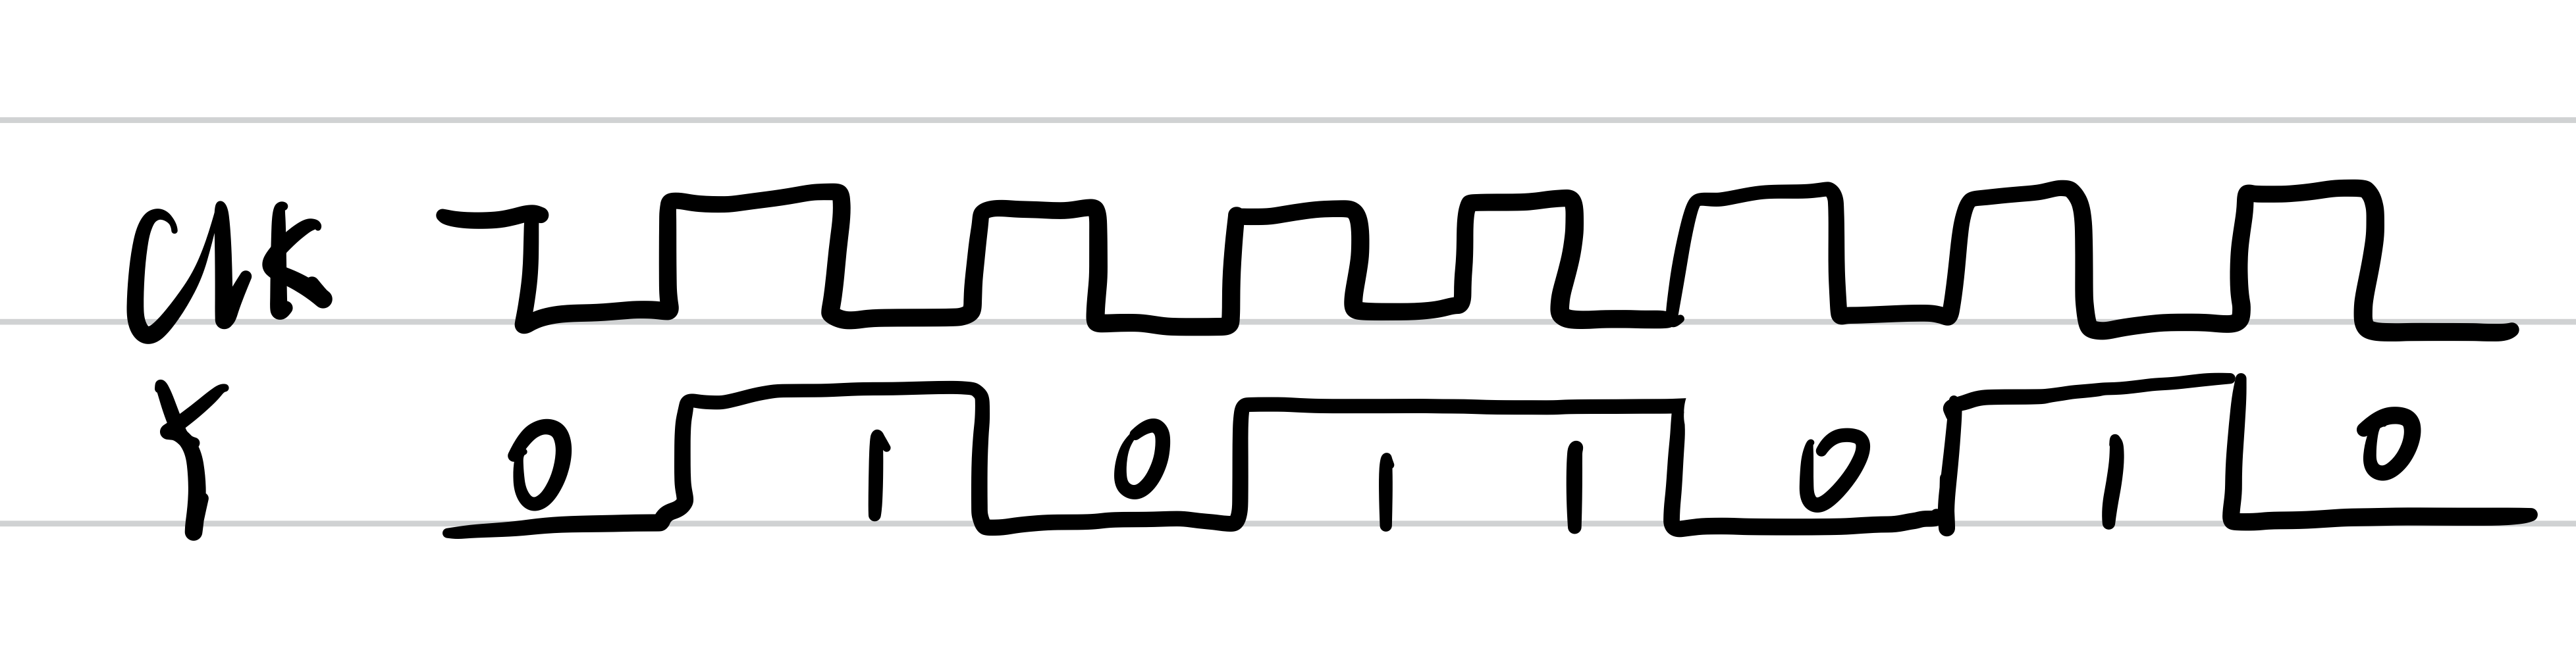 CLK
Y 0 1 0 1 1 0 1 0